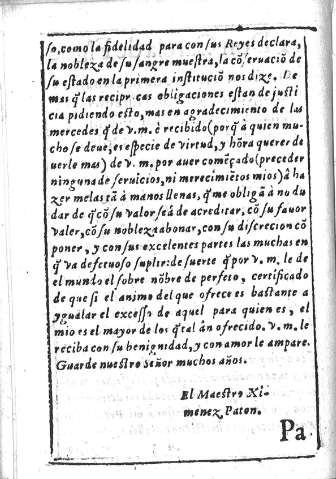 so, como la fidelidad para con sus Reyes declara,
la nobleza de su sangre muestra, la cōseruaciō de
su estado en la primera instituciō nos dize. De
mas q̃ las reciprocas obligaciones estan de justi
cia pidiendo esto, mas en agradecimiento de las
mercedes q̃ de v.m. è recibido (porq̃ à quien mu-
cho se deue, es especie de virtud, y hōra querer de
uerle mas) de v.m. por auer comēçado (preceder
ninguna de seruicios, ni merecimiētos mios) à ha
zer melas tā à manos llenas, q̃ me obligā à no du
dar de q̃ cō su valor seā de acreditar, cō su fauor
valer, cō su nobleza abonar, con su discrecion cō
poner, y con sus excelentes partes las muchas en
q̃ va defetuoso suplir: de suerte q̃ por v.m. le de
el mundo el sobre nōbre de perfeto, certificado
de que si el animo del que ofrece es bastante a
ygualar el excesso de aquel para quien es, el
mio es el mayor de los q̃ tal ān ofrecido. v.m. le
reciba con su benignidad, y con amor le ampare.
Guarde nuestro Señor muchos años.
El Maestro Xi-
menez Paton.
Pa